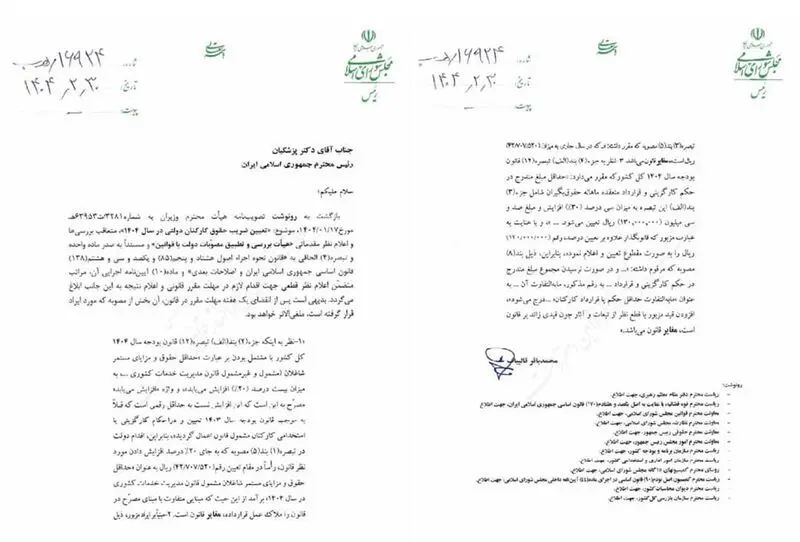 جمهوری اسلامی ایران
مجلس شورای اسلامی
رئیس
شماره: ۱۶۹۲۴
تاریخ: ۱۴۰۴.۲.۳۰
پیوست:
جناب آقای دکتر پزشکیان
رئیس محترم جمهوری اسلامی ایران
سلام علیکم؛
بازگشت به رونوشت تصویب‌نامه هیأت محترم وزیران به شماره ۳۲۸۱/ت۶۳۹۵۳هـ
مورخ ۱۴۰۴/۰۱/۱۷، موضوع: «تعیین ضریب حقوق کارکنان دولتی در سال ۱۴۰۴»، متعاقب بررسی‌ها
و اعلام نظر مقدماتی «هیأت بررسی و تطبیق مصوبات دولت با قوانین» و مستنداً به صدر ماده واحده
و تبصره(۴) الحاقی به «قانون نحوه اجراء اصول هشتاد و پنجم(۸۵) و یکصد و سی و هشتم(۱۳۸)
قانون اساسی جمهوری اسلامی ایران و اصلاحات بعدی» و ماده(۱۰) آیین‌نامه اجرایی آن، مراتب
متضمّن اعلام نظر قطعی جهت اقدام لازم در مهلت مقرر قانونی و اعلام نتیجه به این جانب ابلاغ
می‌گردد. بدیهی است پس از انقضای یک هفته مهلت مقرر در قانون، آن بخش از مصوبه که مورد ایراد
قرار گرفته است، ملغی‌الاثر خواهد بود.
«۱-نظر به اینکه جزء(۲) بند(الف) تبصره(۱۲) قانون بودجه سال ۱۴۰۴
کل کشور با مشتمل بودن بر عبارت «حداقل حقوق و مزایای مستمر
شاغلان (مشمول و غیرمشمول قانون مدیریت خدمات کشوری ... به
میزان بیست درصد (۲۰٪) افزایش می‌یابد» و واژه «افزایش می‌یابد»
مصرّح به این است که این افزایش نسبت به حداقل رقمی است که قبلاً
به موجب قانون بودجه سال ۱۴۰۳ تعیین و در احکام کارگزینی یا
استخدامی کارکنان مشمول قانون اعمال گردیده، بنابراین، اقدام دولت
در تبصره(۱) بند(۵) مصوبه که به جای ۲۰٪ درصد افزایش دادن مورد
نظر قانون، رأساً در مقام تعیین رقم(۴۲/۷۰۷/۵۲۰) ریال به عنوان «حداقل
حقوق و مزایای مستمر شاغلان مشمول قانون مدیریت خدمات کشوری
در سال ۱۴۰۴» برآمد از این حیث که مبنایی متفاوت با مبنای مصرّح در
قانون را ملاک عمل قرارداده، مغایر قانون است. ۲-مبنیاً بر ایراد مزبور، ذیل
جمهوری اسلامی ایران
مجلس شورای اسلامی
رئیس
شماره: ۱۶۹۲۴
تاریخ: ۱۴۰۴.۲.۳۰
پیوست:
تبصره(۳) بند(۵) مصوبه که مقرر داشته: «که در سال جاری به میزان (۴۲/۷۰۷/۵۲۰)
ریال است»، مغایر قانون می‌باشد. ۳- نظر به جزء(۴) بند(الف) تبصره(۱۲) قانون
بودجه سال ۱۴۰۴ کل کشور که مقرر می‌دارد: «حداقل مبلغ مندرج در
حکم کارگزینی و قرارداد منعقده ماهانه حقوق‌بگیران شامل جزء(۳)
بند(الف) این تبصره به میزان سی درصد (۳۰٪) افزایش و مبلغ صد و
سی میلیون (۱۳۰,۰۰۰,۰۰۰) ریال تعیین می‌شود. ...» و با عنایت به
عبارت مزبور که قانونگذار علاوه بر تعیین درصد، رقم (۱۳۰/۰۰۰/۰۰۰)
ریال را به صورت مقطوع تعیین و اعلام نموده، بنابراین، ذیل بند(۸)
مصوبه که مرقوم داشته: «... و در صورت نرسیدن مجموع مبلغ مندرج
در حکم کارگزینی و قرارداد ... به رقم مذکور، مابه‌التفاوت آن ... به
عنوان «مابه‌التفاوت حداقل حکم یا قرارداد کارکنان» ... درج می‌شود»،
افزودن قید مزبور با قطع نظر از تبعات و آثار چون قیدی زائد بر قانون
است، مغایر قانون می‌باشد.»
محمدباقر قالیباف
رونوشت:
– ریاست محترم دفتر مقام معظم رهبری، جهت اطلاع.
– ریاست محترم قوه قضائیه، با عنایت به اصل یکصد و هفتادم(۱۷۰) قانون اساسی جمهوری اسلامی ایران، جهت اطلاع.
– معاونت محترم قوانین مجلس شورای اسلامی، جهت اطلاع.
– معاونت محترم نظارت مجلس شورای اسلامی، جهت اطلاع.
– معاونت محترم حقوقی رئیس جمهور، جهت اطلاع.
– معاونت محترم امور مجلس رئیس جمهور، جهت اطلاع.
– ریاست محترم سازمان برنامه و بودجه کشور، جهت اطلاع.
– ریاست محترم سازمان امور اداری و استخدامی کشور، جهت اطلاع.
– روسای محترم کمیسیونهای مجلس شورای اسلامی، جهت اطلاع.
– ریاست محترم کمیسیون اصل نودم(۹۰) قانون اساسی در اجرای ماده(۴۴) آیین‌نامه داخلی مجلس شورای اسلامی، جهت اطلاع.
– ریاست محترم دیوان محاسبات کشور، جهت اطلاع.
– ریاست محترم سازمان بازرسی کل کشور، جهت اطلاع.